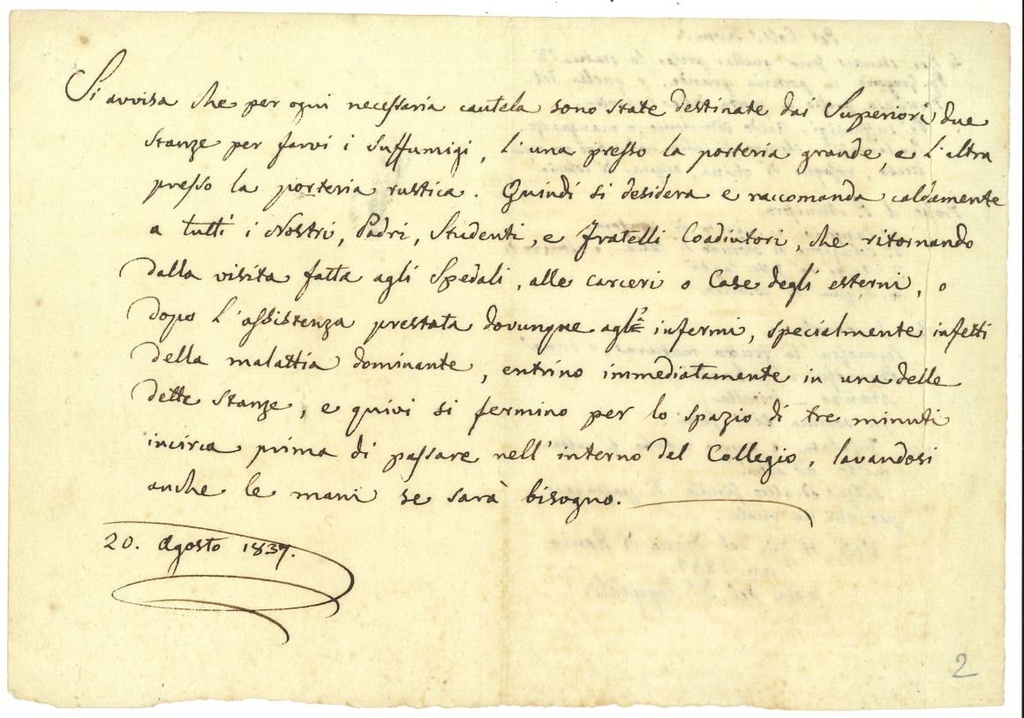 Si avvisa che per ogni necessaria cautela sono state destinate dai Superiori due
stanze per farvi i suffumigi, l'una presso la porteria grande, e l'altra
presso la porteria rustica. Quindi si desidera e raccomanda caldamente
a tutti i Nostri, Padri, Studenti, e Fratelli Coadiutori, che ritornando
dalla visita fatta agli Spedali, alle carceri o Case degli esterni, o
dopo l'assistenza prestata dovunque agli infermi, specialmente infetti
della malattia dominante, entrino immediatamente in una delle
dette stanze, e quivi si fermino per lo spazio di tre minuti
incirca prima di passare nell'interno del Collegio, lavandosi
anche le mani se sarà bisogno.
20. Agosto 1837.
2